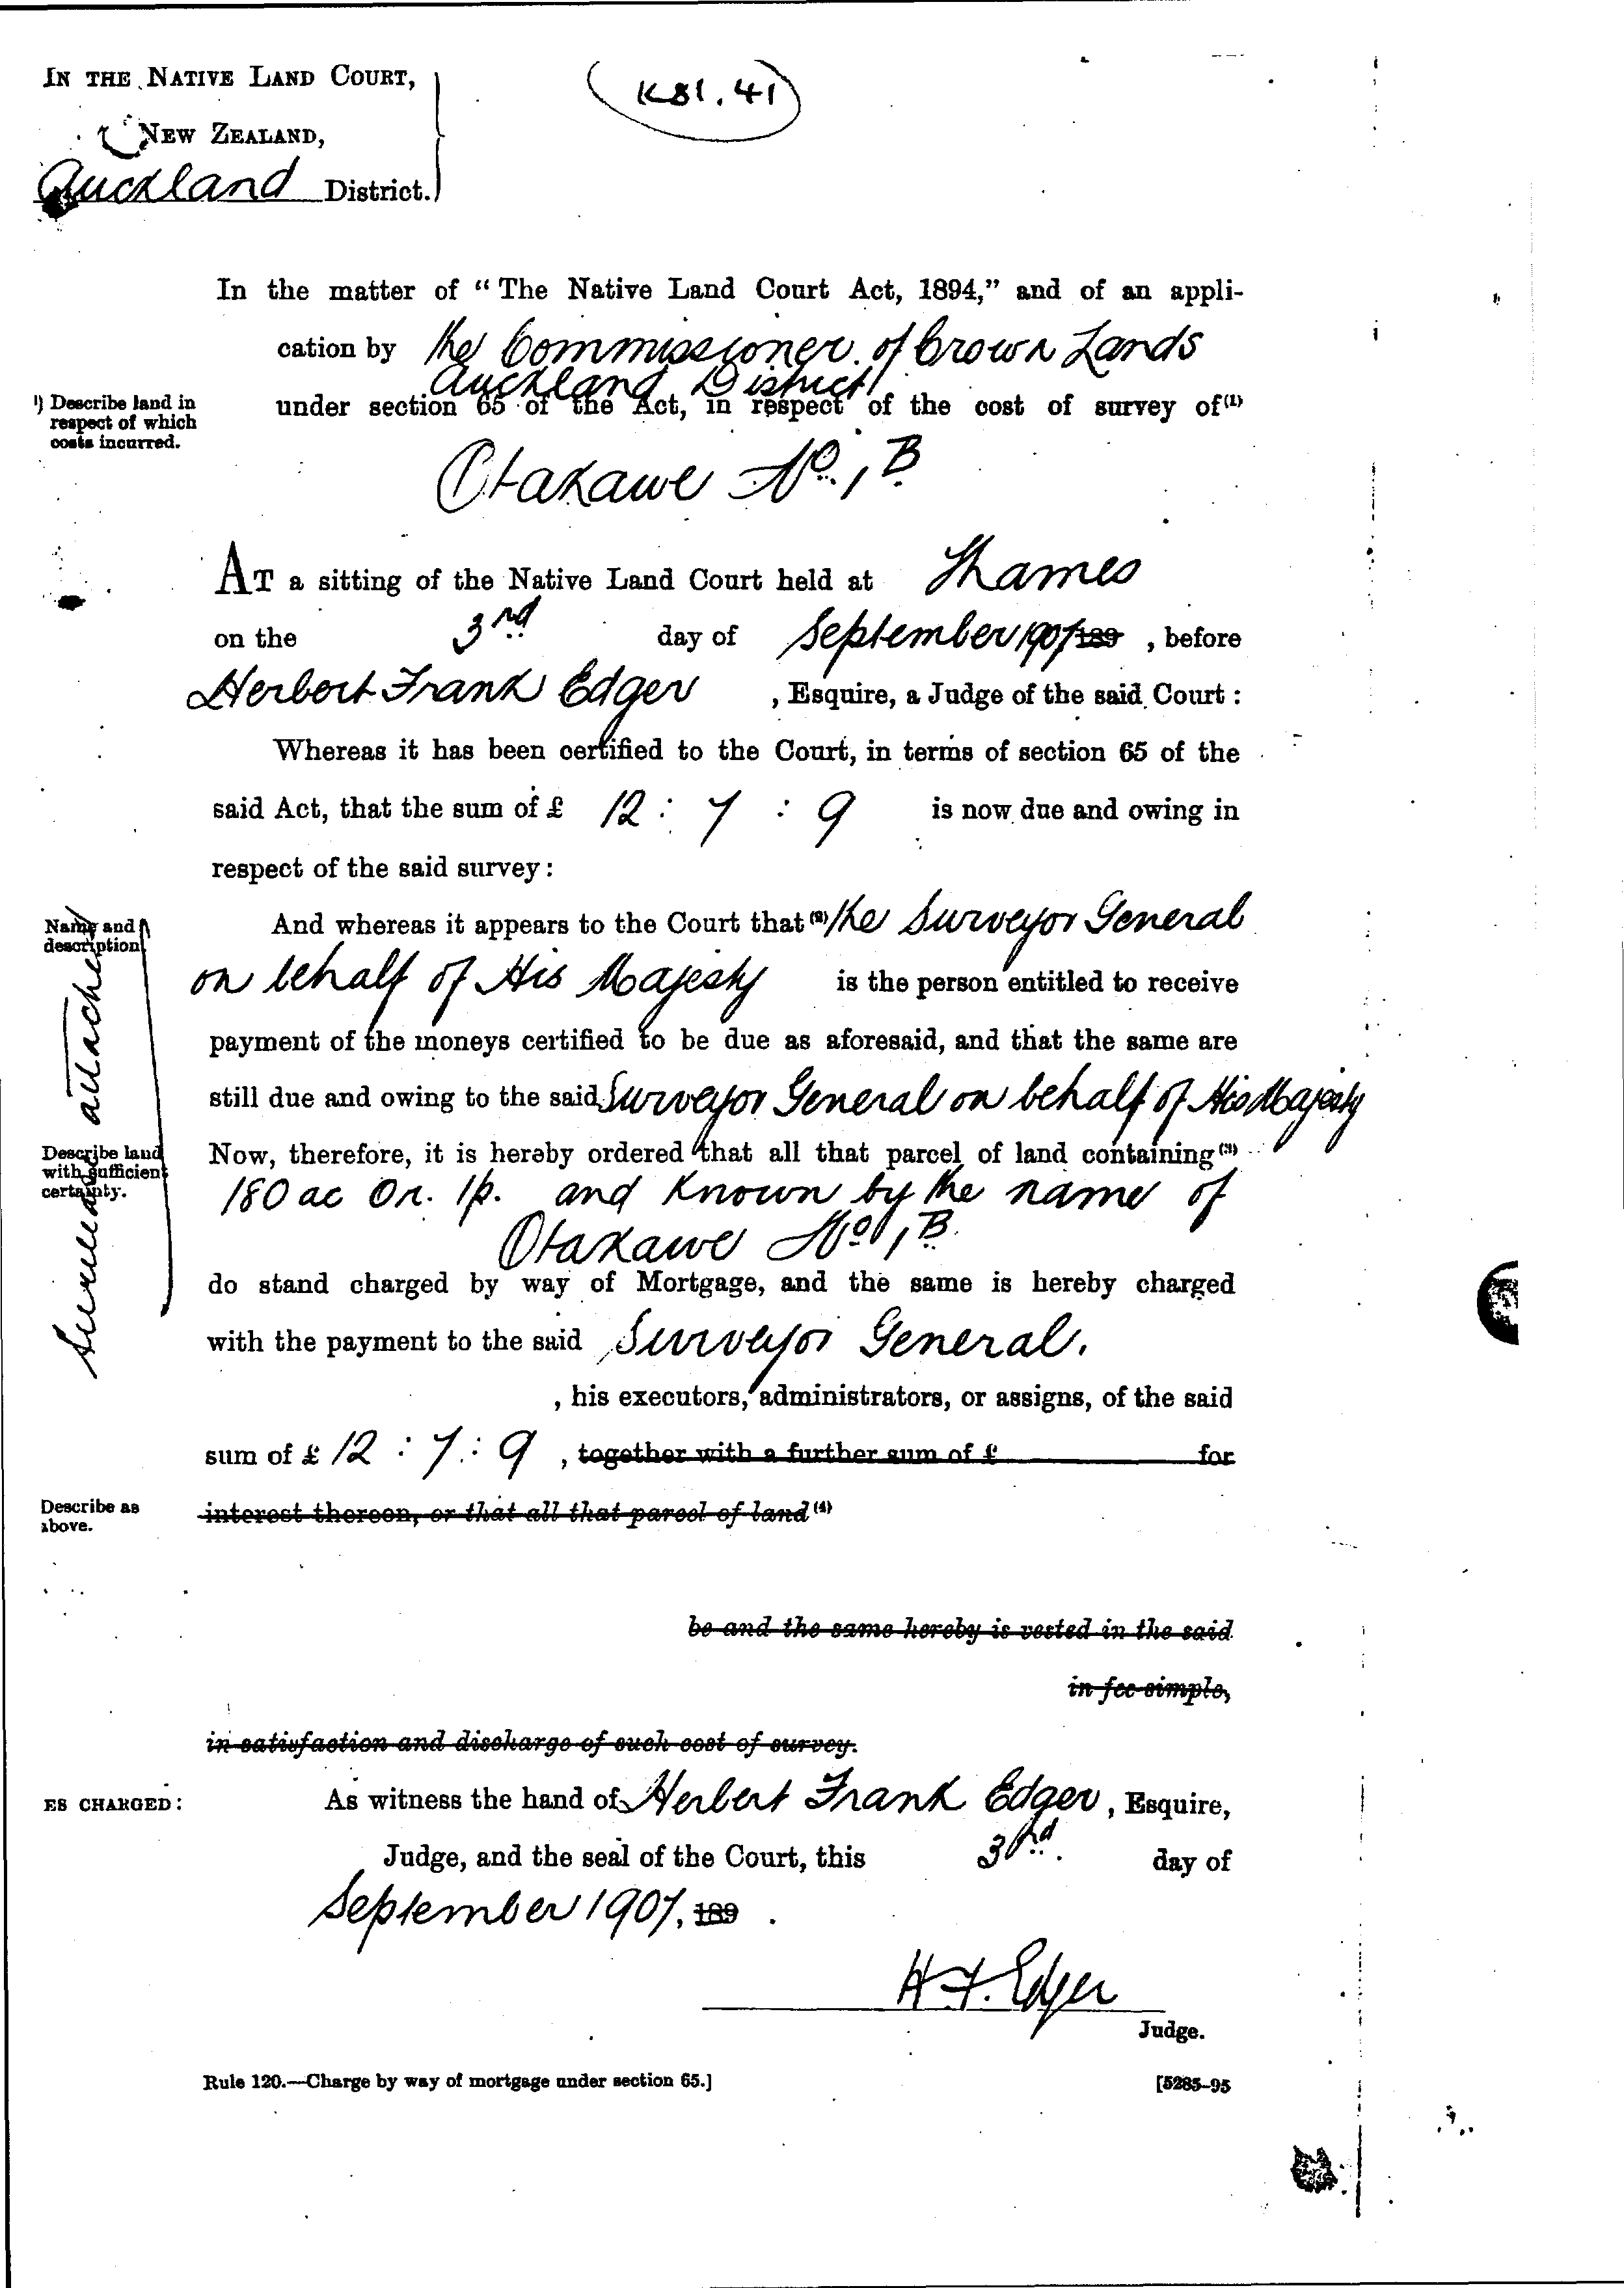 IN THE NATIVE LAND COURT,
NEW ZEALAND,
Auckland District.
K81.41
In the matter of "The Native Land Court Act, 1894," and of an appli-
cation by the Commissioner of Crown Lands
Auckland District
under section 65 of the Act, in respect of the cost of survey of (1)
1) Describe land in
respect of which
costs incurred.
Otakawe No. 1B
AT a sitting of the Native Land Court held at Thames
on the 3rd day of September 1907 189 , before
Herbert Frank Edger , Esquire, a Judge of the said Court :
Whereas it has been certified to the Court, in terms of section 65 of the
said Act, that the sum of £ 12 : 7 : 9 is now due and owing in
respect of the said survey :
Name and
description
And whereas it appears to the Court that (2) the Surveyor General
on behalf of His Majesty is the person entitled to receive
payment of the moneys certified to be due as aforesaid, and that the same are
still due and owing to the said Surveyor General on behalf of His Majesty
Describe land
with sufficient
certainty.
attached
Now, therefore, it is hereby ordered that all that parcel of land containing (3)
180 ac 0r. 1p. and known by the name of
Otakawe No. 1B.
do stand charged by way of Mortgage, and the same is hereby charged
with the payment to the said Surveyor General.
, his executors, administrators, or assigns, of the said
sum of £ 12 : 7 : 9 , together with a further sum of £ for
Describe as
above.
interest thereon, or that all that parcel of land (4)
be and the same hereby is vested in the said
in fee simple,
in satisfaction and discharge of such cost of survey.
ES CHARGED :
As witness the hand of Herbert Frank Edger, Esquire,
Judge, and the seal of the Court, this 3rd. day of
September 1907. 189 .
H. F. Edger
Judge.
Rule 120.—Charge by way of mortgage under section 65.]
[5285-95